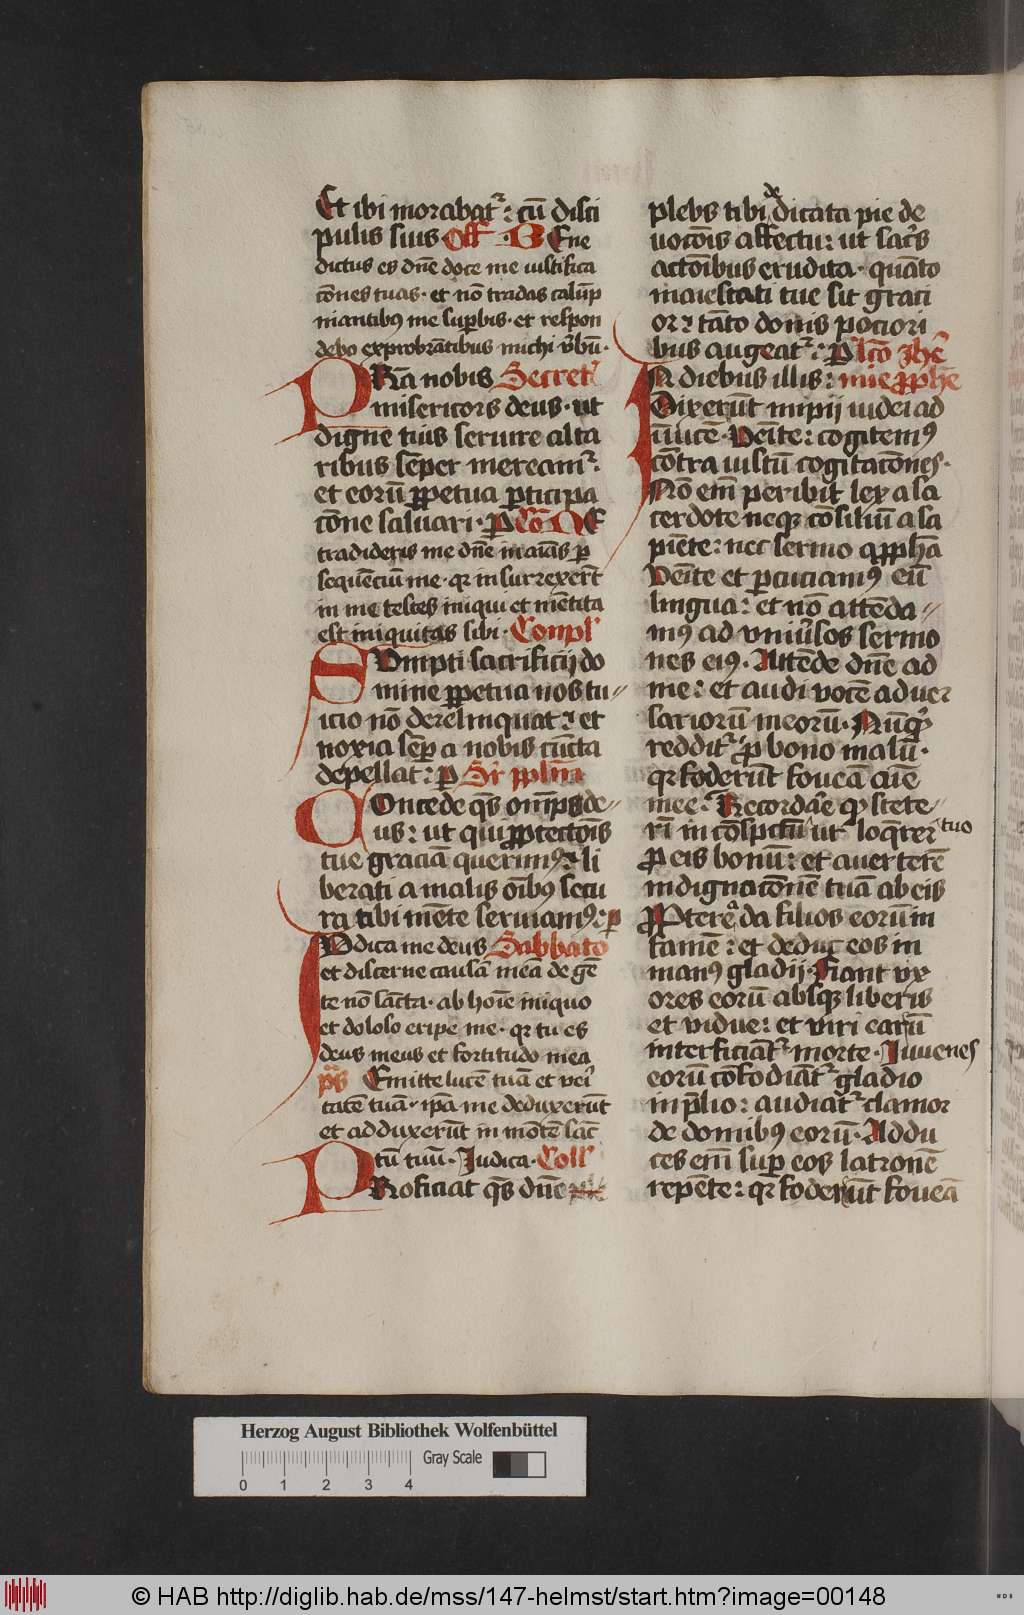 Et ibi morabat᷑: cū disci
pulis suis Off Bene
dictus es dn̄e doce me iustifica
cōnes tuas · et nō tradas calūp
niantibꝰ me suꝑbis · et respon
debo exprobrātibus michi v̄bū ·
PRa nobis Secret
misericors deus · ut
digne tuis seruire alta
ribus sēper mereamᷣ:
et eorū ꝑpetua ꝑticipa
cōne saluari · Co NE
tradideris me dn̄e in aīas ꝑ
sequēciū me · qꝛ insurrexerūt
in me testes iniqui et mētita
est iniquitas sibi · Compl
SVmpti sacrificij do
mine ꝑpetua nos tu
icio nō derelinquat: et
noxia sēꝑ a nobis cūcta
depellat: ꝑ
COncede qs̄ om̄ps de
us: ut qui ꝓtectōis
tue graciā querimꝰ: li
berati a malis oībꝰ secu
ra tibi mēte seruiamꝰ: ꝑ
IVdica me deus Sabbato
et discerne causā meā de gē
te nō sācta · ab hoīe iniquo
et doloso eripe me · qꝛ tu es
deus meus et fortitudo mea
ps̄ Emitte lucē tuā et veri
tatē tuā · ip̄a me deduxerūt
et adduxerūt in mōtē sāc
tū tuū · Judica · Coll
PRoficiat qs̄ dn̄e
plebs tibi dicata pie de
uocōis affectu: ut sacris
actōibus erudita · quāto
maiestati tue fit graci
or: tāto donis pociori
bus augeatᷣ: Lco Jhe
In diebus illis:
Dixerūt impij iudei ad
īuicē · Veīte: cogitemꝰ
cōtra iustū cogitacōnes ·
Nō em̄ peribit lex a sa
cerdote neqꝫ cōsiliū a sa
piēte: nec sermo a ꝓph̄a
Veīte et ꝑcuciamꝰ eū
lingua: et nō attēda
mꝰ ad vniūsos sermo
nes eiꝰ · Attēde dn̄e ad
me: et audi vocē aduer
sariorū meorū · Nūqͥd
redditᷣ ꝓ bono malū ·
qꝛ foderūt foueā aīe
mee: Recordare qd̛ stete
rī in cōspctū tuo ut loqrer
ꝓ eis bonū: et auerterē
indignacōnē tuā ab eis
Ꝓpterea da filios eorū in
famē: et deduc eos in
manꝰ gladij · Fiant vx
ores eorū absqꝫ liberis
et vidue: et viri earū
interficiātᷣ morte · Juuenes
eorū cōfodiātᷣ gladio
in p̄lio: audiatᷣ clamor
de domibꝰ eorū · Addu
ces em̄ suꝑ eos latronē
repēte: qꝛ foderūt foueā
Herzog August Bibliothek Wolfenbüttel
Gray Scale
0 1 2 3 4
© HAB http://diglib.hab.de/mss/147-helmst/start.htm?image=00148